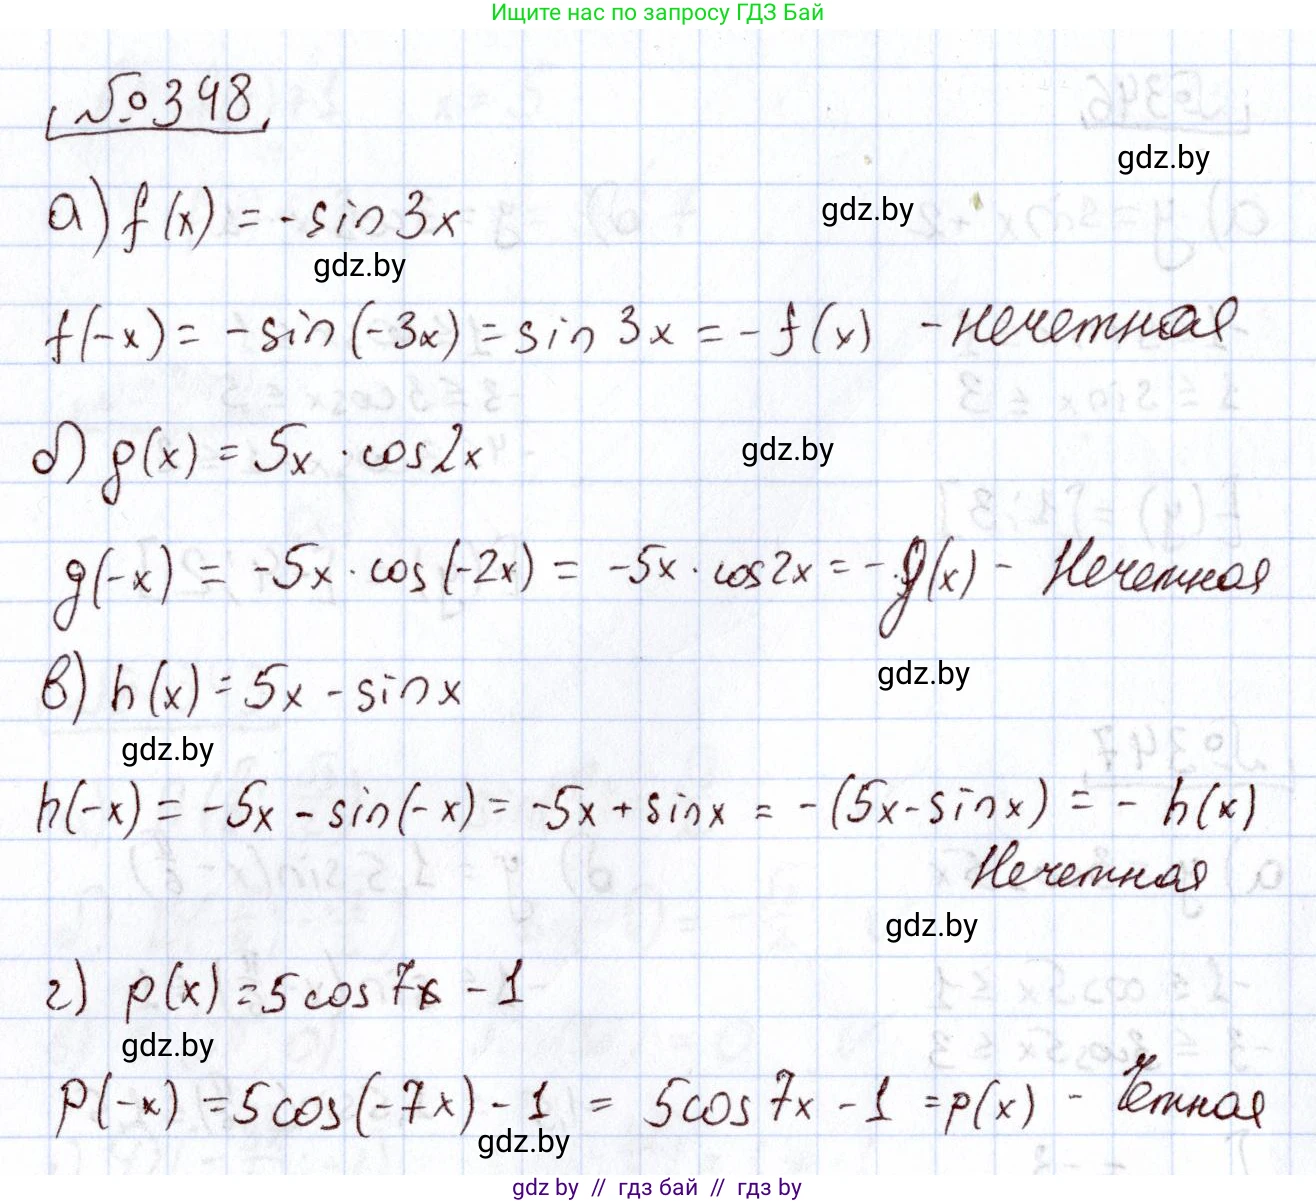 Ищите нас по запросу ГДЗ Бай
№348
gdz.by
а) f(x) = -sin3x
gdz.by
gdz.by
f(-x) = -sin(-3x) = sin 3x = -f(x) - нечетная
б) g(x) = 5x · cos2x
gdz.by
g(-x) = -5x · cos(-2x) = -5x · cos2x = -g(x) - Нечетная
gdz.by
в) h(x) = 5x - sinx
gdz.by
h(-x) = -5x - sin(-x) = -5x + sinx = -(5x-sinx) = - h(x)
Нечетная
gdz.by
г) p(x) = 5cos7x - 1
gdz.by
p(-x) = 5cos(-7x) - 1 = 5cos7x - 1 = p(x) - Четная
gdz.by
gdz by // гдз бай // гдз by